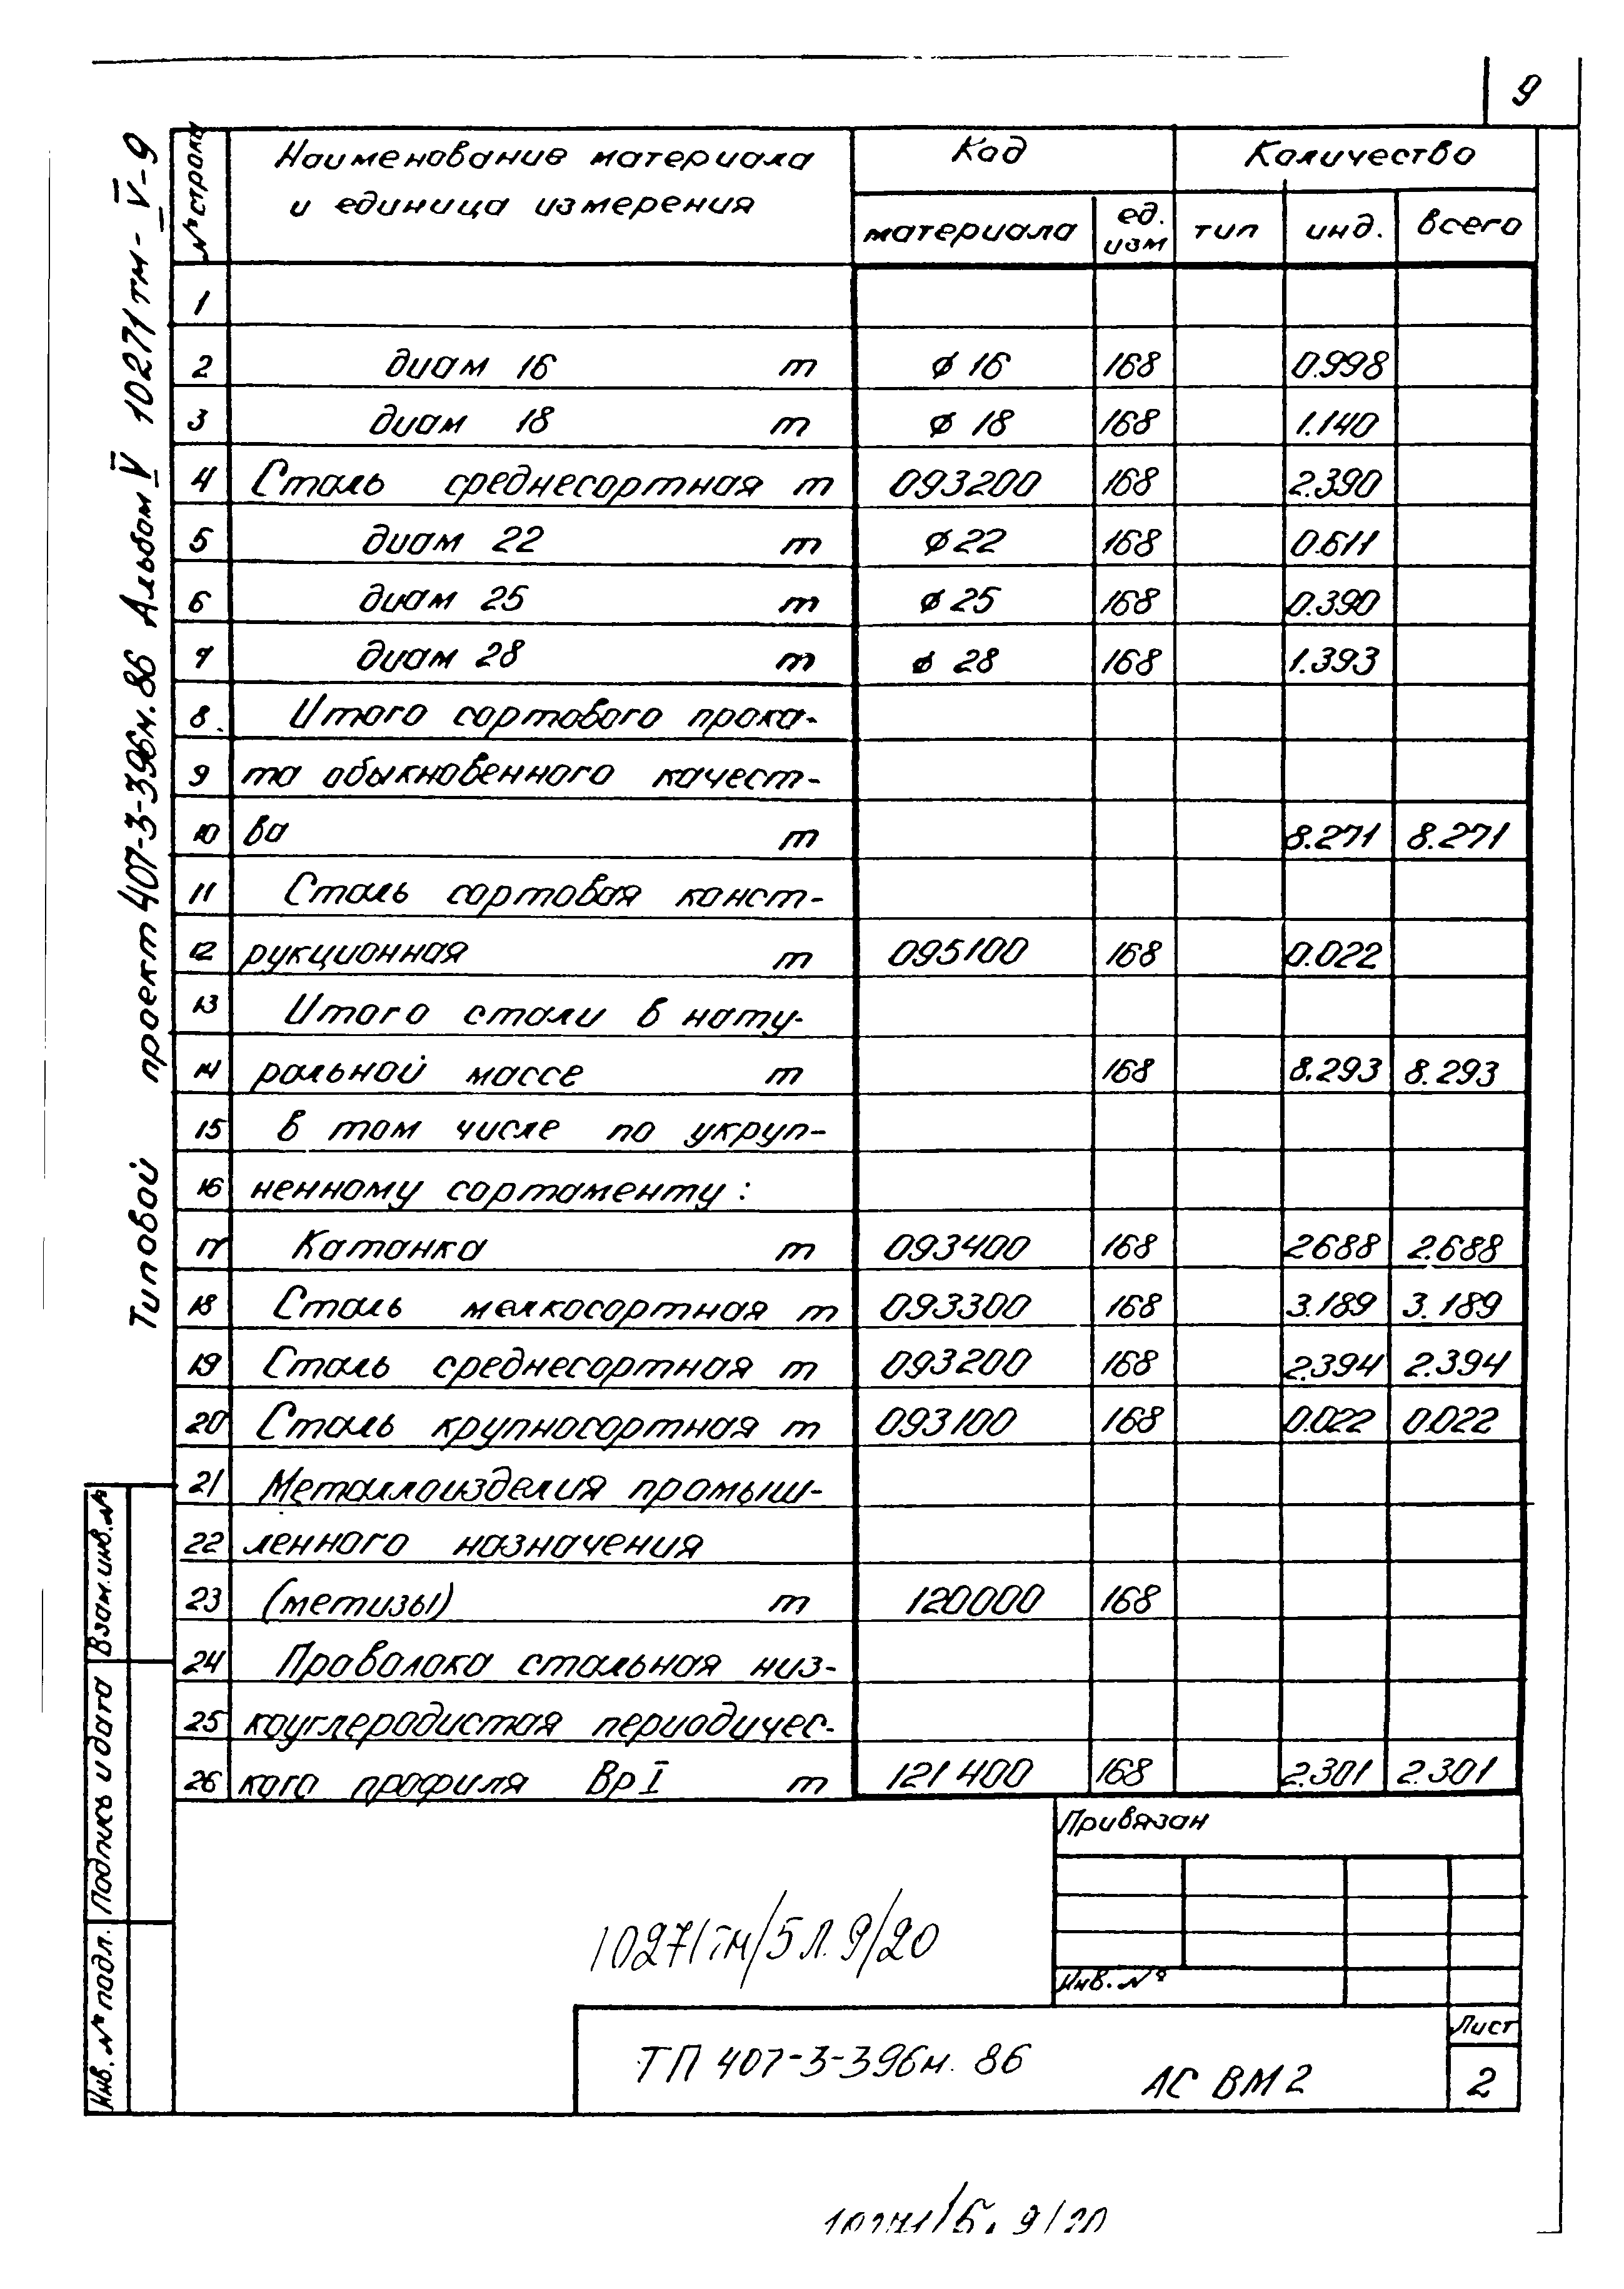 9
Типовой проект 407-3-396м.86 Альбом V 10271тм-V-9
№ строки
Наименование материала и единица измерения
Код
Количество
материала
ед. изм
тип
инд.
всего
1
2 диам 16 т ø 16 168 0.998
3 диам 18 т ø 18 168 1.140
4 Сталь среднесортная т 093200 168 2.390
5 диам 22 т ø 22 168 0.611
6 диам 25 т ø 25 168 0.390
7 диам 28 т ø 28 168 1.393
8 Итого сортового прока-
9 та обыкновенного качест-
10 ва т 8.271 8.271
11 Сталь сортовая конст-
12 рукционная т 095100 168 0.022
13 Итого стали в нату-
14 ральной массе т 168 8.293 8.293
15 в том числе по укруп-
16 ненному сортаменту:
17 Катанка т 093400 168 2688 2.688
18 Сталь мелкосортная т 093300 168 3.189 3.189
19 Сталь среднесортная т 093200 168 2.394 2.394
20 Сталь крупносортная т 093100 168 0.022 0.022
21 Металлоизделия промыш-
22 ленного назначения
23 (метизы) т 120000 168
24 Проволока стальная низ-
25 коуглеродистая периодичес-
26 кого профиля Вр I т 121400 168 2.301 2.301
Взам. инв. №
Подпись и дата
Инв. № подл.
Привязан
Инв. №
10271тм/5 л. 9/20
ТП 407-3-396м. 86 АС ВМ2
Лист
2
9/20